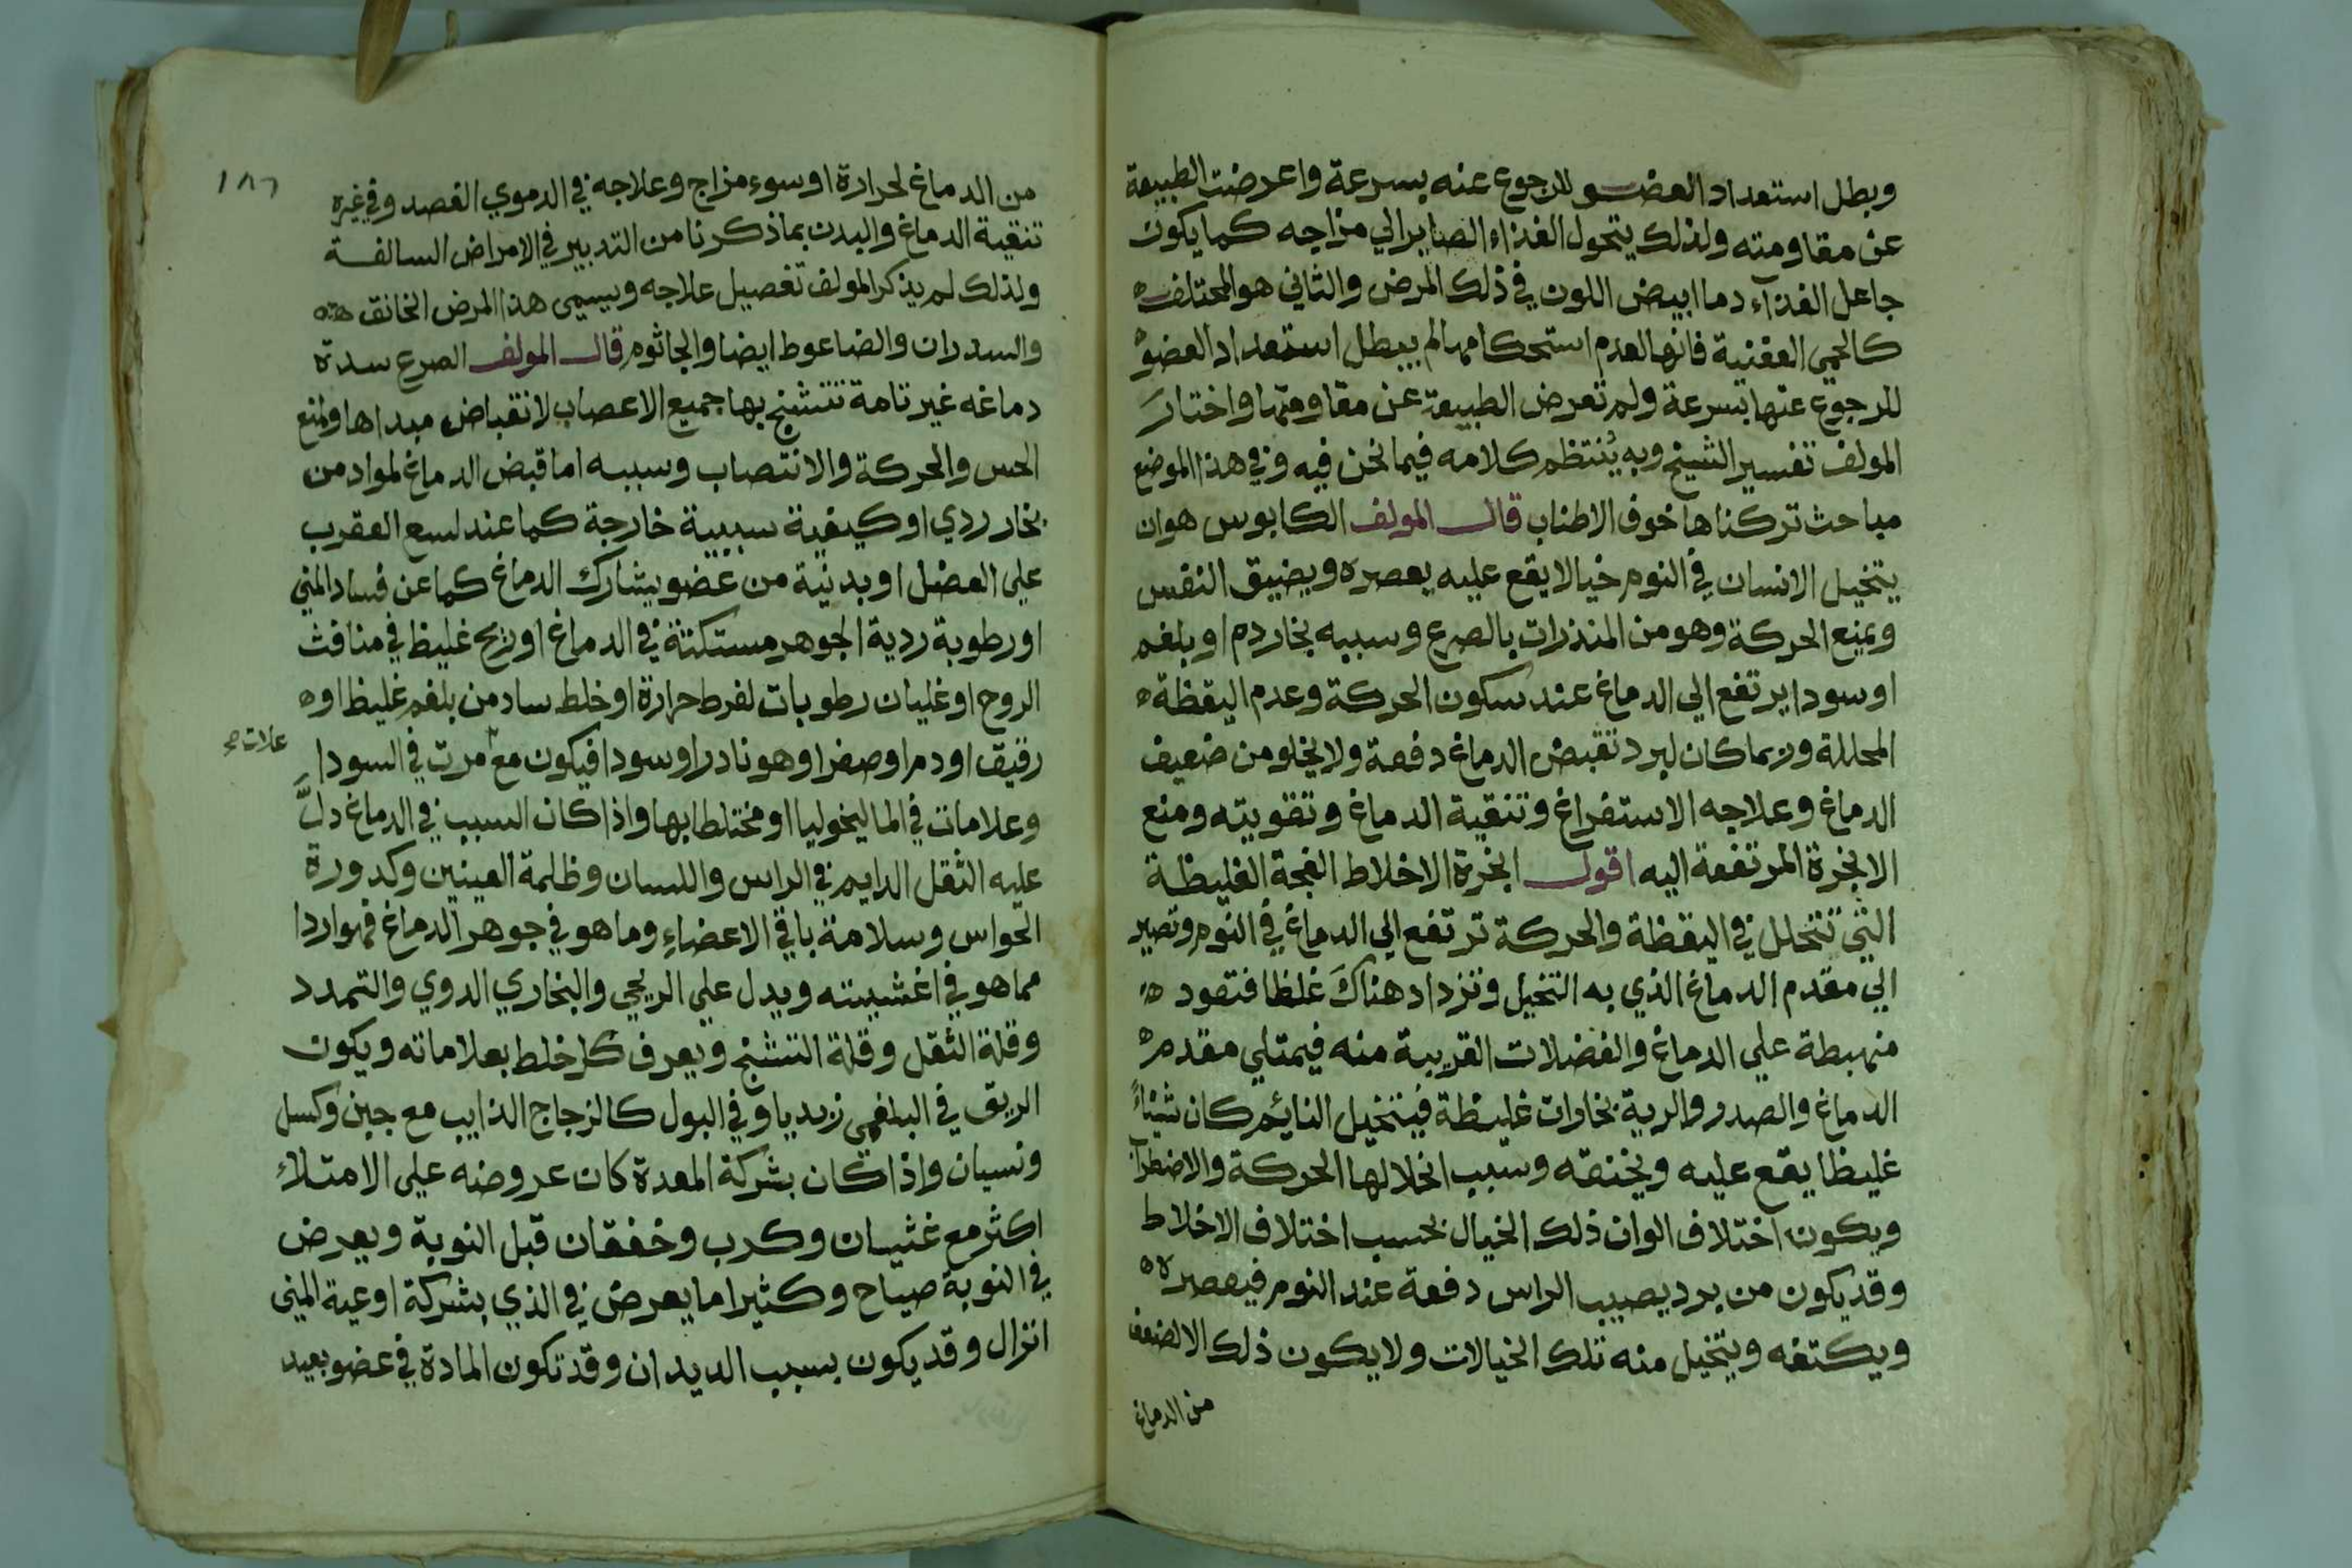 وبطل استعداد العضو للرجوع عنه بسرعة واعرضت الطبيعة
عن مقاومته ولذلك يتحول الغذاء الصاير الي مزاجه كما يكون
جاعل الغذآء دما ابيض اللون في ذلك المرض والثاني هو المختلف
كالحمي العفنية فانها لعدم استحكامها لم يبطل استعداد العضو
للرجوع عنها بسرعة ولم تعرض الطبيعة عن مقاومتها واختار
المولف تفسير الشيخ وبه يُنتظم كلامه فيما نحن فيه وفي هذا الموضع
مباحث تركناها خوف الاطناب قال المولف الكابوس هو ان
يتخيل الانسان في النوم خيالا يقع عليه يعصره ويضيق النفس
ويمنع الحركة وهو من المنذرات بالصرع وسببه بخار دم او بلغم
او سودا يرتفع الي الدماغ عند سكون الحركة وعدم اليقظة
المحللة وربما كان لبرد تقبض الدماغ دفعة ولا يخلو من ضعيف
الدماغ وعلاجه الاستفراغ وتنقية الدماغ وتقويته ومنع
الابخرة المرتفعة اليه اقول ابخرة الاخلاط الفجة الغليظة
التي تتحلل في اليقظة والحركة ترتفع الي الدماغ في النوم وتصير
الي مقدم الدماغ الذي به التخيل وتزداد هناك غلظا فتعود
منهبطة علي الدماغ والفضلات القريبة منه فيمتلي مقدم
الدماغ والصدر والرية بخارات غليظة فيتخيل النايم كان شيئاً
غليظا يقع عليه ويخنقه وسبب انحلالها الحركة والاضطراب
ويكون اختلاف الوان ذلك الخيال بحسب اختلاف الاخلاط
وقد يكون من برد يصيب الراس دفعة عند النوم فيعصره
ويكتفه ويتخيل منه تلك الخيالات ولا يكون ذلك الا لضعف
من الدماغ
١٨٦
من الدماغ لحرارة او سوء مزاج وعلاجه في الدموي الفصد وفي غيره
تنقية الدماغ والبدن بما ذكرنا من التدبير في الامراض السالفة
ولذلك لم يذكر المولف تفصيل علاجه ويسمي هذا المرض الخانق
والسدران والضاعوط ايضا والجاثوم قال المولف الصرع سدة
دماغه غير تامة تتشنج بها جميع الاعصاب لانقباض مبداها وتمنع
الحس والحركة والانتصاب وسببه اما قبض الدماغ لمواد من
بخار ردي او كيفية سببية خارجة كما عند لسع العقرب
علي العضل او بدنية من عضو يشارك الدماغ كما عن فساد المني
او رطوبة ردية الجوهر مستكنة في الدماغ او ريح غليظ في منافث
الروح او غليان رطوبات لفرط حرارة او خلط ساد من بلغم غليظ او
رقيق او دم او صفرا وهو نادر او سودا فيكون مع مرت في السودا
علات صح
وعلامات في الماليخوليا او مختلطا بها واذا كان السبب في الدماغ دلَّ
عليه الثقل الدايم في الراس واللسان وظلمة العينين وكدورة
الحواس وسلامة باقي الاعضاءِ وما هو في جوهر الدماغ فهو اردا
مما هو في اغشيته ويدل علي الريحي والبخاري الدوي والتمدد
وقلة الثقل وقلة التشنج ويعرف كل خلط بعلاماته ويكون
الريق في البلغمي زبديا وفي البول كالزجاج الذايب مع جبن وكسل
ونسيان واذا كان بشركة المعدة كان عروضه علي الامتلاء
اكثر مع غثيان وكرب وخفقان قبل النوبة ويعرض
في النوبة صياح وكثيرا ما يعرض في الذي بشركة اوعية المني
انزال وقد يكون بسبب الديدان وقد تكون المادة في عضو بعيد